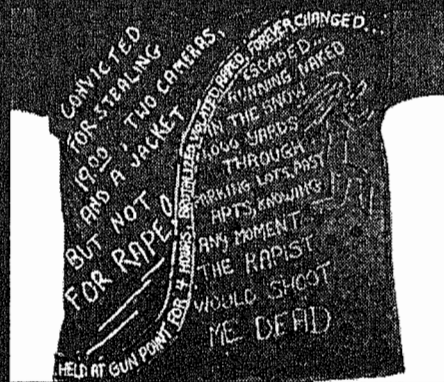 CONVICTED
FOR STEALING
19.00, TWO CAMERAS,
AND A JACKET
BUT NOT
FOR RAPE
HELD AT GUN POINT FOR 4 HOURS, BRUTALIZED, VIOLATED, RAPED, FOREVER CHANGED...
ESCAPED...
RUNNING NAKED
IN THE SNOW
1,000 YARDS
THROUGH
PARKING LOTS, PAST
APTS, KNOWING
ANY MOMENT
THE RAPIST
WOULD SHOOT
ME DEAD